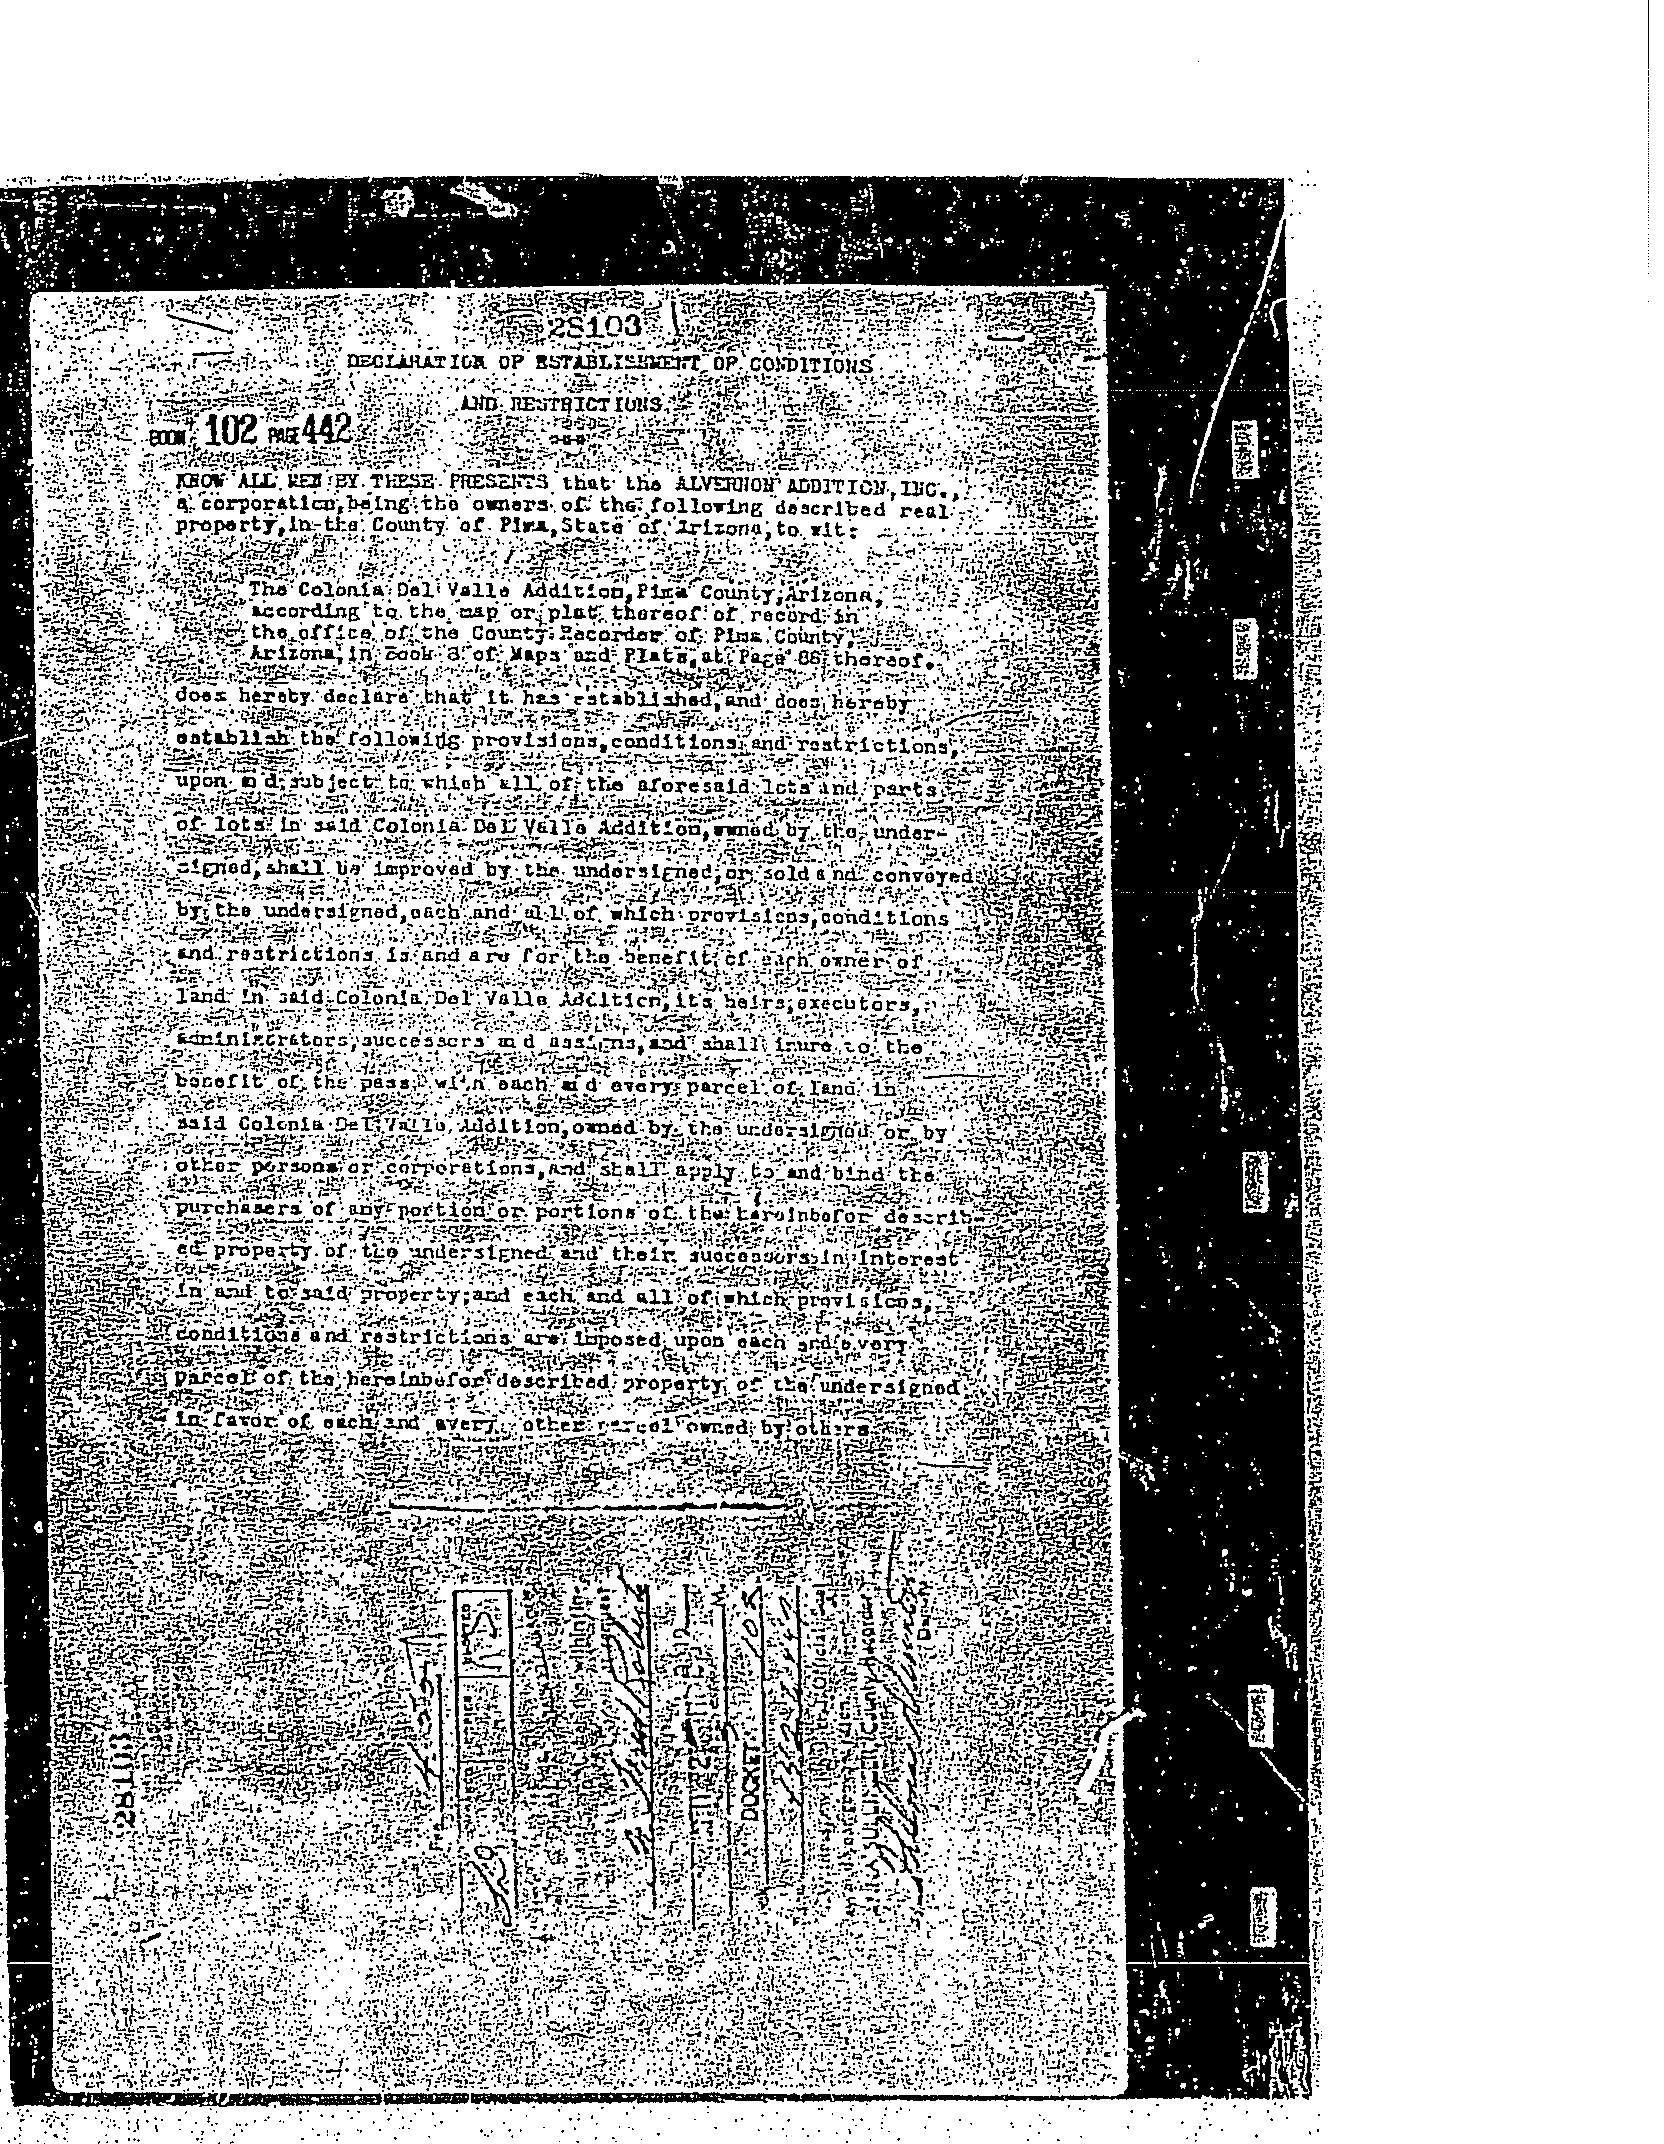 28103
DECLARATION OF ESTABLISHMENT OF CONDITIONS
AND RESTRICTIONS
BOOK 102 PAGE 442
---
KNOW ALL MEN BY THESE PRESENTS that the ALVERNON ADDITION, INC.,
a corporation,being the owners of the following described real
property,in the County of Pima,State of Arizona,to wit:
The Colonia Del Valle Addition,Pima County,Arizona,
according to the map or plat thereof of record in
the office of the County Recorder of Pima County,
Arizona,in Book 8 of Maps and Plats,at Page 86 thereof.
does hereby declare that it has established,and does hereby
establish the following provisions,conditions and restrictions,
upon and subject to which all of the aforesaid lots and parts
of lots in said Colonia Del Valle Addition,owned by the under-
signed,shall be improved by the undersigned,or sold and conveyed
by the undersigned,each and all of which provisions,conditions
and restrictions is and are for the benefit of each owner of
land in said Colonia Del Valle Addition,it's heirs,executors,
administrators,successors and assigns,and shall inure to the
benefit of the pass with each and every parcel of land in
said Colonia Del Valle Addition,owned by the undersigned or by
other persons or corporations,and shall apply to and bind the
purchasers of any portion or portions of the hereinbefor describ-
ed property of the undersigned and their successors in interest
in and to said property;and each and all of which provisions,
conditions and restrictions are imposed upon each and every
parcel of the hereinbefor described property of the undersigned
in favor of each and every other parcel owned by others
28103
DOCKET
County Recorder
Deputy